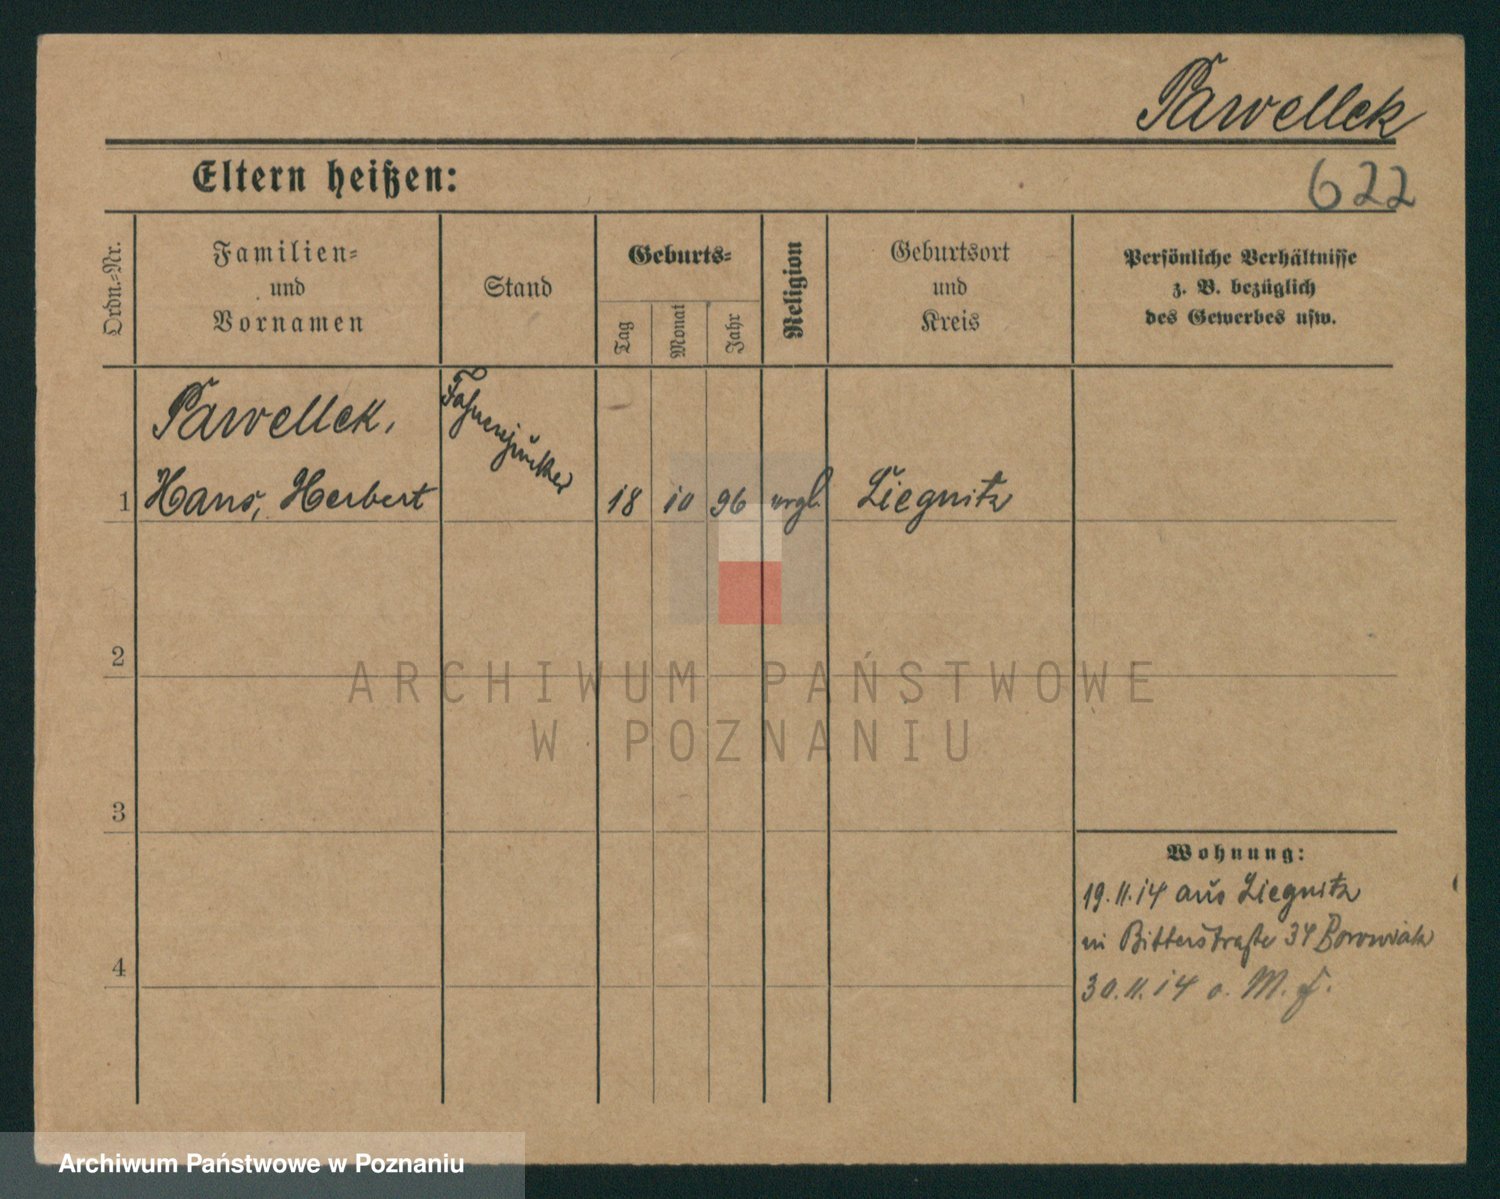 Pawellek
Eltern heißen:
622
Ordn.-Nr.
Familien-
und
Vornamen
Stand
Geburts-
Tag
Monat
Jahr
Religion
Geburtsort
und
Kreis
Persönliche Verhältnisse
z. B. bezüglich
des Gewerbes usw.
Pawellek,
Fahnenjunker
1 Hans, Herbert 18 10 96 Liegnitz
2
3
4
Wohnung:
19.11.14 aus Liegnitz
in Bitterstraße 34 Borowiak
30.11.14 o. M. f.
ARCHIWUM PAŃSTWOWE
W POZNANIU
Archiwum Państwowe w Poznaniu